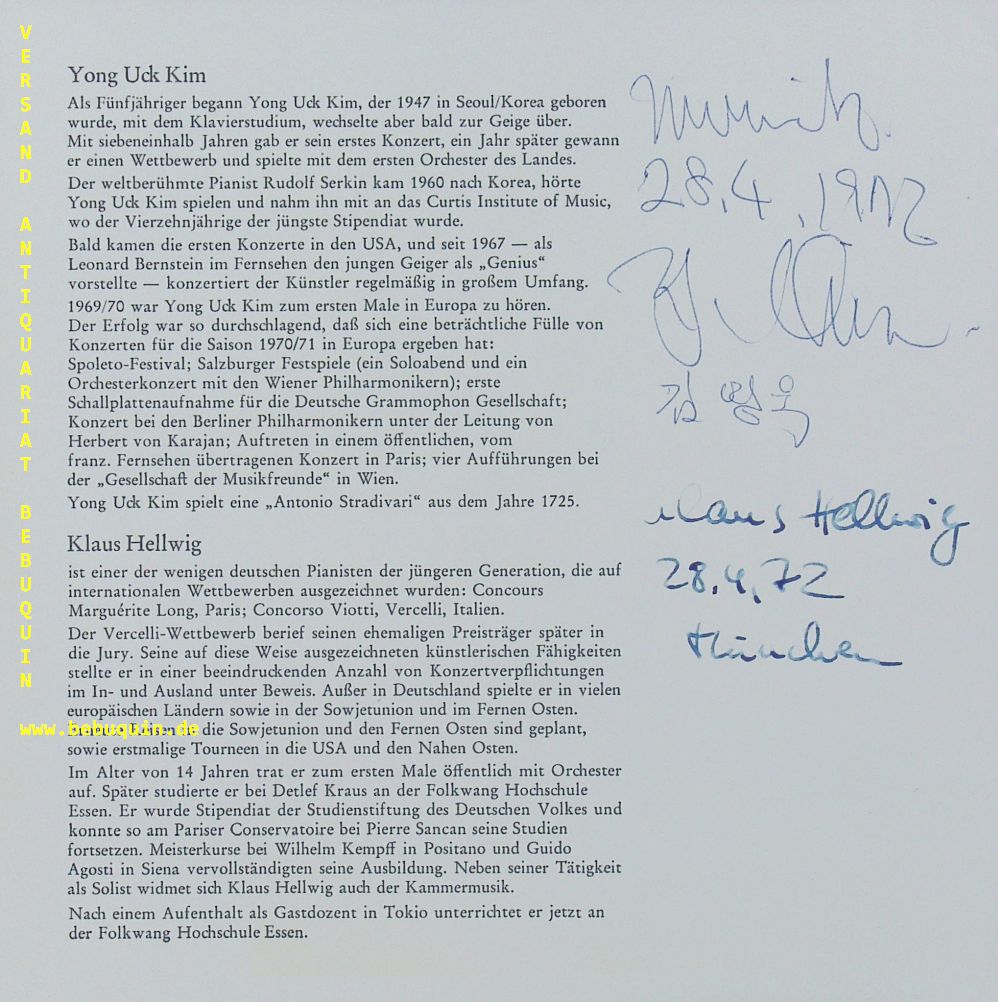 Yong Uck Kim
Als Fünfjähriger begann Yong Uck Kim, der 1947 in Seoul/Korea geboren
wurde, mit dem Klavierstudium, wechselte aber bald zur Geige über.
Mit siebeneinhalb Jahren gab er sein erstes Konzert, ein Jahr später gewann
er einen Wettbewerb und spielte mit dem ersten Orchester des Landes.
Der weltberühmte Pianist Rudolf Serkin kam 1960 nach Korea, hörte
Yong Uck Kim spielen und nahm ihn mit an das Curtis Institute of Music,
wo der Vierzehnjährige der jüngste Stipendiat wurde.
Bald kamen die ersten Konzerte in den USA, und seit 1967 — als
Leonard Bernstein im Fernsehen den jungen Geiger als „Genius“
vorstellte — konzertiert der Künstler regelmäßig in großem Umfang.
1969/70 war Yong Uck Kim zum ersten Male in Europa zu hören.
Der Erfolg war so durchschlagend, daß sich eine beträchtliche Fülle von
Konzerten für die Saison 1970/71 in Europa ergeben hat:
Spoleto-Festival; Salzburger Festspiele (ein Soloabend und ein
Orchesterkonzert mit den Wiener Philharmonikern); erste
Schallplattenaufnahme für die Deutsche Grammophon Gesellschaft;
Konzert bei den Berliner Philharmonikern unter der Leitung von
Herbert von Karajan; Auftreten in einem öffentlichen, vom
franz. Fernsehen übertragenen Konzert in Paris; vier Aufführungen bei
der „Gesellschaft der Musikfreunde“ in Wien.
Yong Uck Kim spielt eine „Antonio Stradivari“ aus dem Jahre 1725.
Klaus Hellwig
ist einer der wenigen deutschen Pianisten der jüngeren Generation, die auf
internationalen Wettbewerben ausgezeichnet wurden: Concours
Marguérite Long, Paris; Concorso Viotti, Vercelli, Italien.
Der Vercelli-Wettbewerb berief seinen ehemaligen Preisträger später in
die Jury. Seine auf diese Weise ausgezeichneten künstlerischen Fähigkeiten
stellte er in einer beeindruckenden Anzahl von Konzertverpflichtungen
im In- und Ausland unter Beweis. Außer in Deutschland spielte er in vielen
europäischen Ländern sowie in der Sowjetunion und im Fernen Osten.
die Sowjetunion und den Fernen Osten sind geplant,
sowie erstmalige Tourneen in die USA und den Nahen Osten.
Im Alter von 14 Jahren trat er zum ersten Male öffentlich mit Orchester
auf. Später studierte er bei Detlef Kraus an der Folkwang Hochschule
Essen. Er wurde Stipendiat der Studienstiftung des Deutschen Volkes und
konnte so am Pariser Conservatoire bei Pierre Sancan seine Studien
fortsetzen. Meisterkurse bei Wilhelm Kempff in Positano und Guido
Agosti in Siena vervollständigten seine Ausbildung. Neben seiner Tätigkeit
als Solist widmet sich Klaus Hellwig auch der Kammermusik.
Nach einem Aufenthalt als Gastdozent in Tokio unterrichtet er jetzt an
der Folkwang Hochschule Essen.
28.4.1972
김영욱
Klaus Hellwig
28.4.72
München
VERSAND ANTIQUARIAT BEBUQUIN
www.bebuquin.de